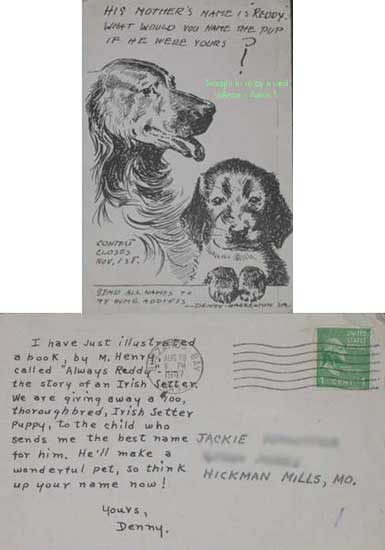 HIS MOTHER'S NAME IS REDDY.
WHAT WOULD YOU NAME THE PUP
IF HE WERE YOURS?
CONTEST
CLOSES
NOV. 1st.
SEND ALL NAMES TO
MY HOME ADDRESS
I have just illustrated
a book, by M. Henry,
called "Always Reddy"-
the story of an Irish Setter.
We are giving away a 100,
thoroughbred, Irish Setter
Puppy, to the child who
sends me the best name
for him. He'll make a
wonderful pet, so think
up your name now!
Yours,
Denny.
BAY
AUG 19
PM
1947
UNITED
STATES
1 CENT 1
JACKIE
HICKMAN MILLS, MO.